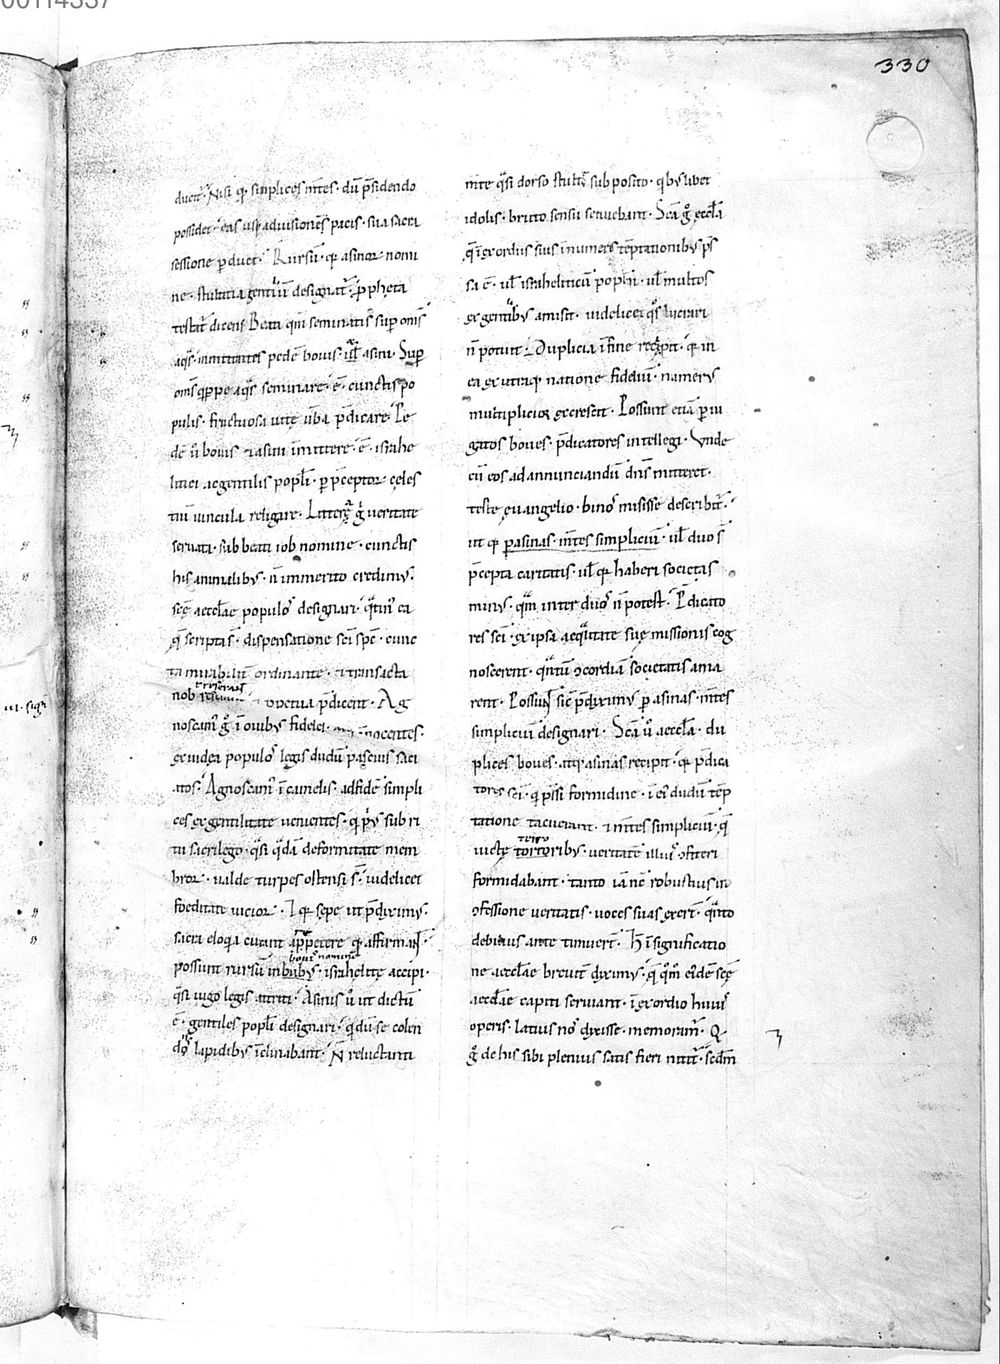 00114337
330
ducit. Nisi qd simplices mtes. dū p̄sidendo
possidet. eas usq; ad uisionē pacis. sua sacra
sessione pducit. Rursū. qa asinoꝝ nomi
ne. stultitia gentiū designat̄. p ppheta
testat̄ dicens Beati qui seminatis sup om̄s
aqs. inmittentes pedē bouis. ꝉ asini. Sup
om̄s qppe aqs seminare. ē. cunctis po
pulis. fructuosa uitę uba p̄dicare. Pe
dē ū bouis ⁊ asini inmittere. ē. israhe
litici ac gentilis popli. p p̄ceptoꝝ cęles
tiū uincula religare. Litterę g̊ ueritate
seruata. sub beati iob nomine. cunctis
his animalibꝰ. n̄ immerito credimꝰ.
scę aecclae populos designari. qtin ea
q̄ scripta s̄. dispensatione sci sp̄c. cunc
ta mirabilit̄ ordinante. ⁊ transacta
nob reserant ⁊ uentura p̄dicent. Ag
noscam̄ g̊ ī ouibꝰ fideles innocentes.
ex iudea populos legis dudū pascuis saci
atos. Agnoscam̄ ī camelis. ad fidē simpli
ces ex gentilitate uenientes. q pꝰ sub ri
tu sacrilego. qsi qdā deformitate mem
broꝝ. ualde turpes ostensi s̄. uidelicet
foeditate uicioꝝ. Et qa sępe ut p̄diximꝰ.
sacra eloqia curant repetere qd affirmant.
boum nomine
possunt rursū in bubꝰ. israhelitę accipi.
qsi iugo legis attriti. Asinis ū ut dictū
ē. gentiles popli designari. q dū se colen
dos lapidibꝰ īclinabant. n̄ reluctanti
mte qsi dorso stulte subposito. qbꝰlibet
idolis. bruto sensu seruiebant. Scā g̊ ecclā
q̄ ī exordiis suis innumeris tēptationibꝰ p̄s
sa ē. ul israheliticū popłm. ul multos
ex gentibꝰ amisit. uidelicet qs lucrari
n̄ potuit. Duplicia ī fine recepit. qa in
ea ex utraq; natione fideliū. numerꝰ
multiplicior excrescit. Possunt etiā p iu
gatos boues. p̄dicatores intellegi. Vnde
cū eos ad annunciandū dn̄s mitteret.
teste euangelio. binos misisse describit̄.
ut qa p asinas. mtes simpliciū. ul duo s̄
p̄cepta caritatis. ul qa haberi societas
minꝰ. qm inter duos n̄ potest. P̄dicato
res sci. ex ipsa aeqlitate suę missionis cog
noscerent. qntū ꝯcordiā societatis ama
rent. Possunt sic p̄diximꝰ p asinas. mtes
simpliciū designari. Scā ū aeccla. du
plices boues. atq; asinas recipit. qa p̄dica
tores sci. q p̄ssi formidine. ī ei dudū tēp
tatione tacuerant. ⁊ mtes simpliciū. q̄
terro
uictę tortoribꝰ. ueritatē illiꝰ ꝯfiteri
formidabant. tanto iā nc robustius in
ꝯfessione ueritatis. uoces suas exert. qnto
debilius ante timuert. H̄ ī significatio
ne aecclae breuit̄ diximꝰ. q̄ qm eidē scę
aecclae capiti seruiant. ī exordio huiꝰ
operis. latius nos dixisse. memoram̄. Q
g̊ de his sibi plenius satis fieri nitit̄. secdm